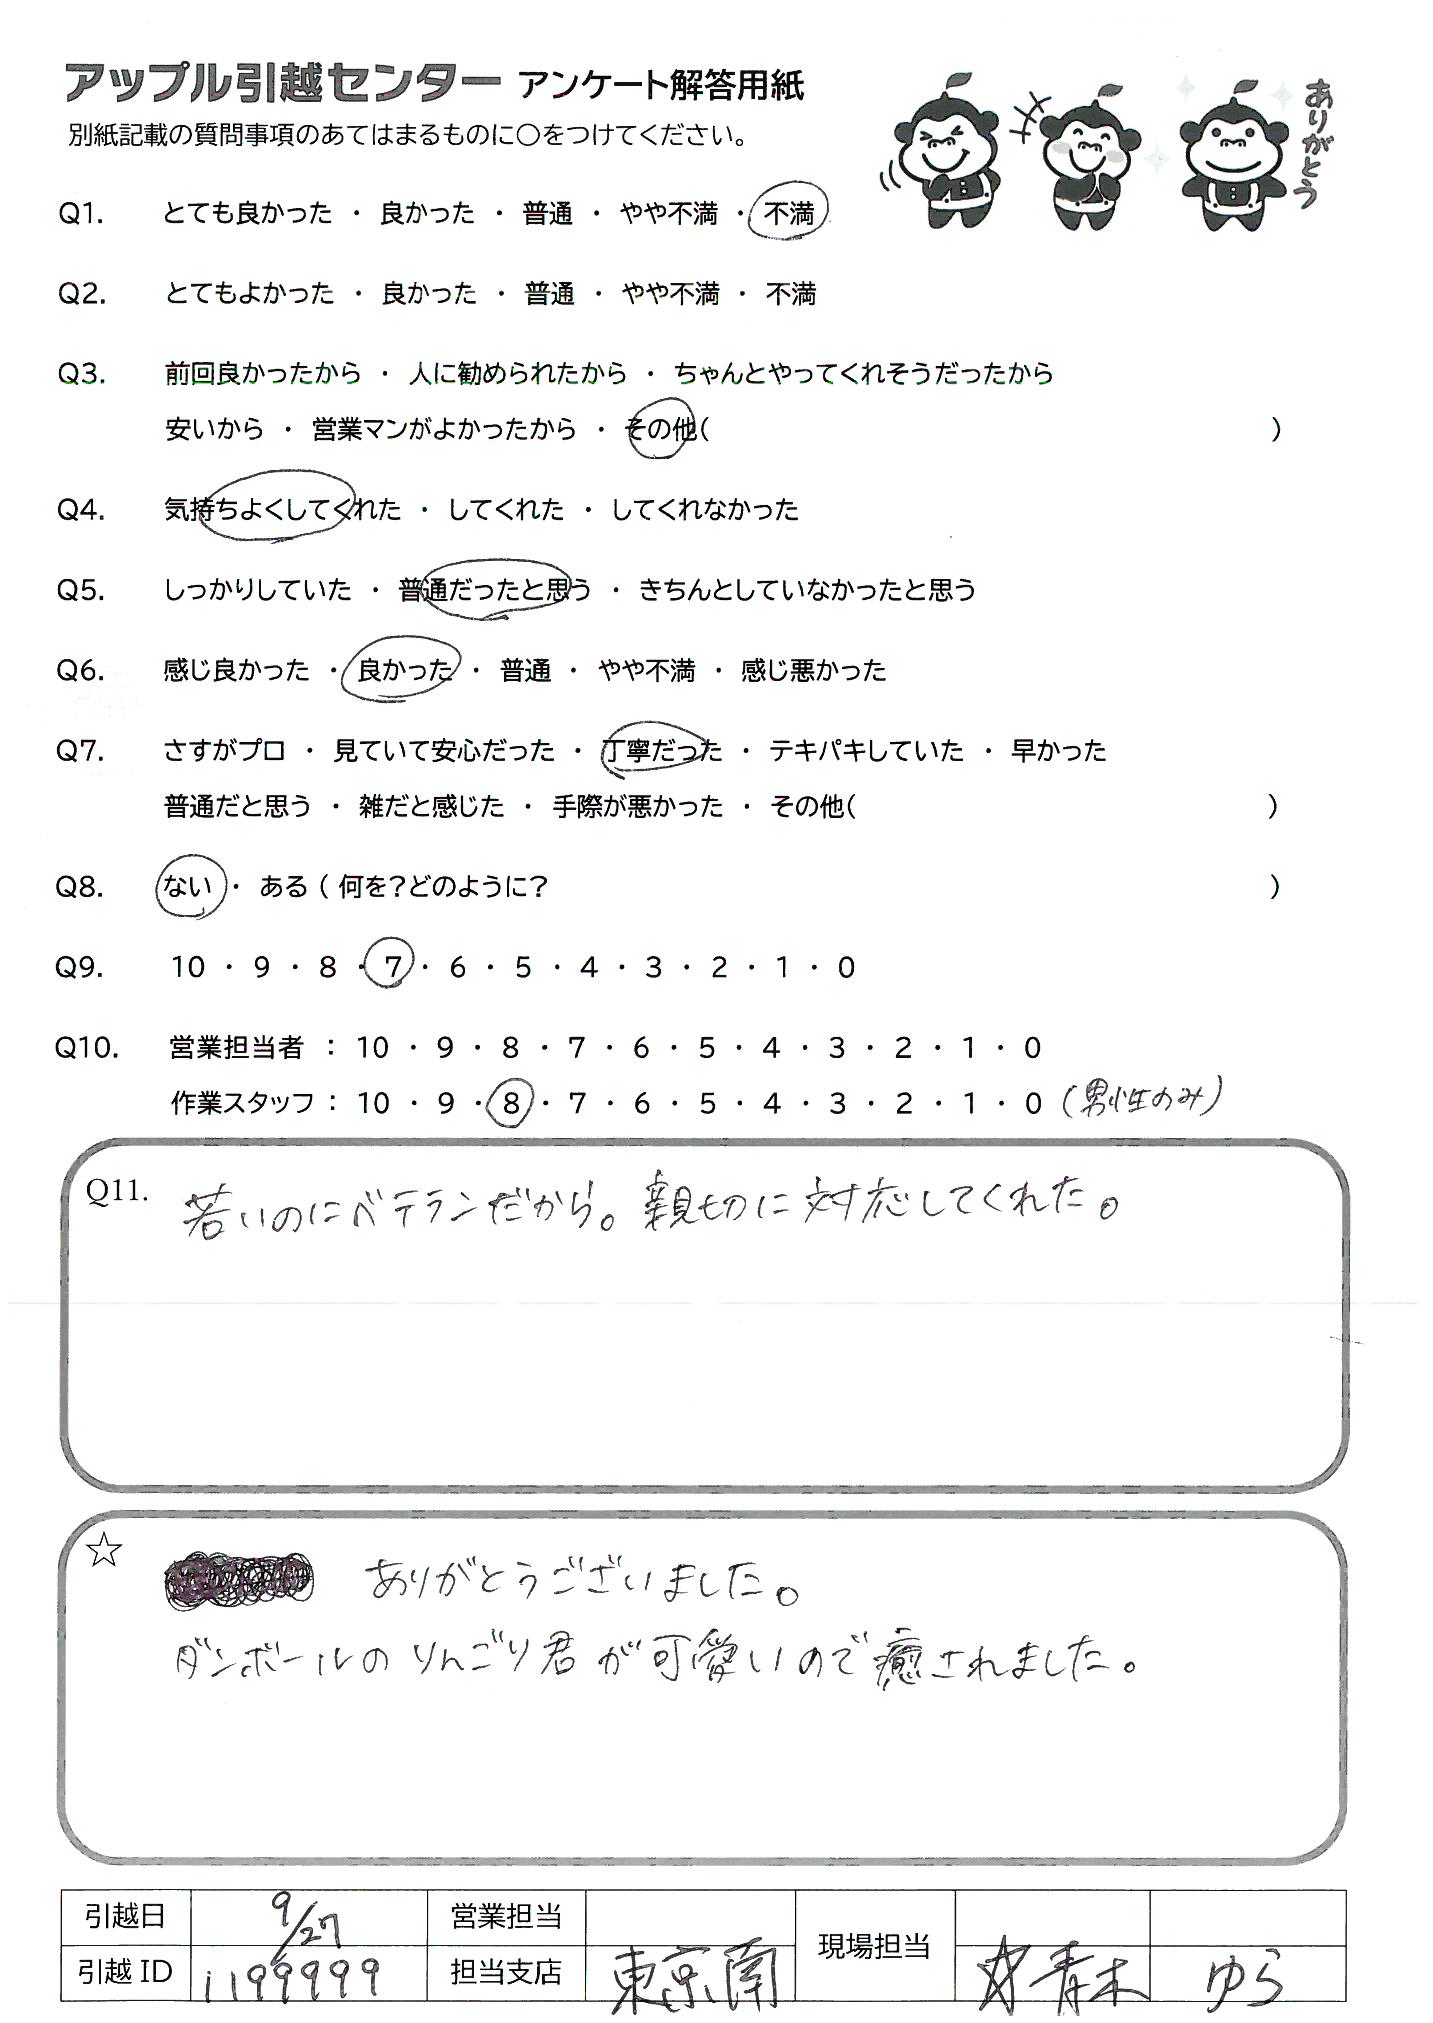 アップル引越センター アンケート解答用紙
別紙記載の質問事項のあてはまるものに〇をつけてください。
ありがとう
Q1. とても良かった ・ 良かった ・ 普通 ・ やや不満 ・ 不満
Q2. とてもよかった ・ 良かった ・ 普通 ・ やや不満 ・ 不満
Q3. 前回良かったから ・ 人に勧められたから ・ ちゃんとやってくれそうだったから
安いから ・ 営業マンがよかったから ・ その他( )
Q4. 気持ちよくしてくれた ・ してくれた ・ してくれなかった
Q5. しっかりしていた ・ 普通だったと思う ・ きちんとしていなかったと思う
Q6. 感じ良かった ・ 良かった ・ 普通 ・ やや不満 ・ 感じ悪かった
Q7. さすがプロ ・ 見ていて安心だった ・ 丁寧だった ・ テキパキしていた ・ 早かった
普通だと思う ・ 雑だと感じた ・ 手際が悪かった ・ その他( )
Q8. ない ・ ある ( 何を?どのように? )
Q9. 10 ・ 9 ・ 8 ・ 7 ・ 6 ・ 5 ・ 4 ・ 3 ・ 2 ・ 1 ・ 0
Q10. 営業担当者 : 10 ・ 9 ・ 8 ・ 7 ・ 6 ・ 5 ・ 4 ・ 3 ・ 2 ・ 1 ・ 0
作業スタッフ : 10 ・ 9 ・ 8 ・ 7 ・ 6 ・ 5 ・ 4 ・ 3 ・ 2 ・ 1 ・ 0 (男性のみ)
Q11. 若いのにベテランだから。親切に対応してくれた。
☆ ありがとうございました。
ダンボールのりんごり君が可愛いので癒されました。
引越日 9/27 営業担当 現場担当
引越ID 1199999 担当支店 東京南 ☆青木 ゆら